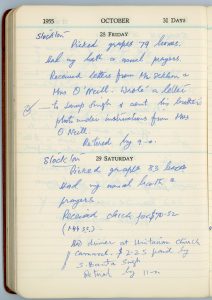 1955 OCTOBER 31 DAYS
28 FRIDAY
Stockton
Picked grapes 79 boxes.
Had my bath & usual prayers.
Received letters from Mr
Mrs O'Neill. Wrote a letter
to Samp Singh & sent his brother's
photo under instructions from Mrs
O'Neill
Retired by 9-0.
Stockton
29 SATURDAY
Picked grapes 83 boxes
Had my usual bath &
prayers.
Received check for $70-52
Had dinner at Unitarian Church
$2-25 paid by
Singh
Retired by 11-0.